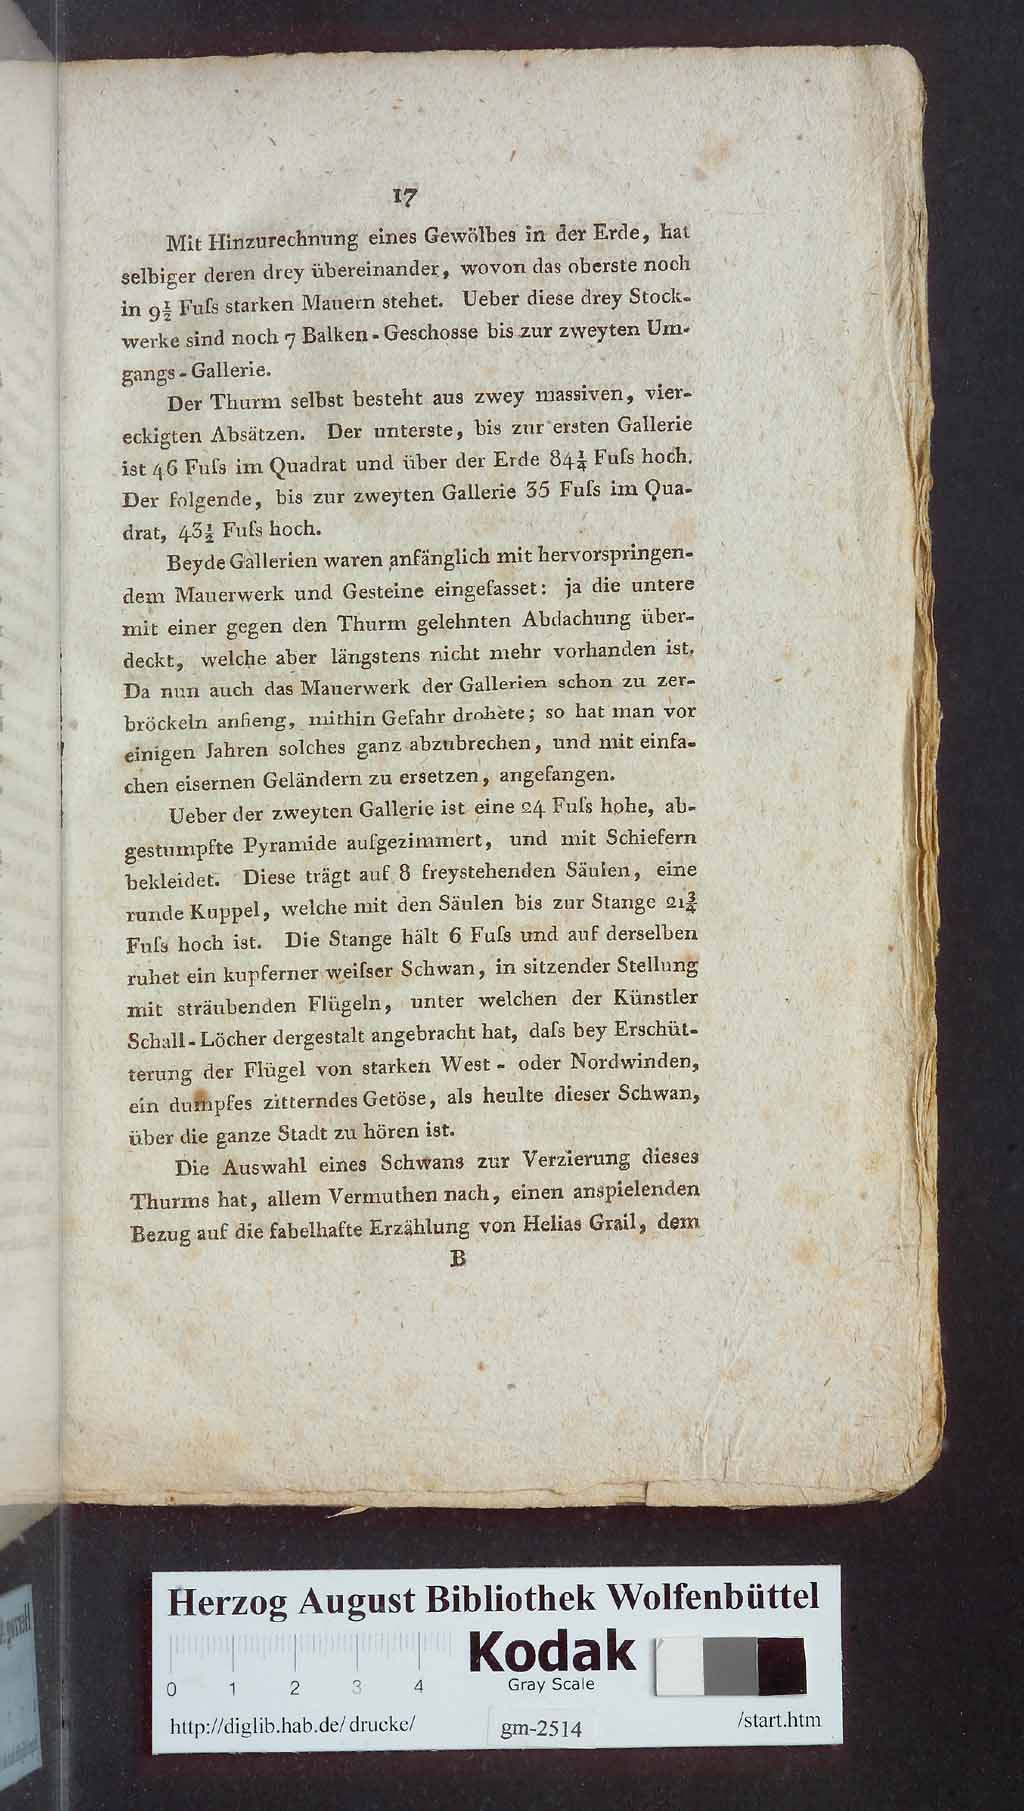 17
Mit Hinzurechnung eines Gewölbes in der Erde, hat
selbiger deren drey übereinander, wovon das oberste noch
in 9½ Fuſs starken Mauern stehet. Ueber diese drey Stock-
werke sind noch 7 Balken-Geschosse bis zur zweyten Um-
gangs-Gallerie.
Der Thurm selbst besteht aus zwey massiven, vier-
eckigten Absätzen. Der unterste, bis zur ersten Gallerie
ist 46 Fuſs im Quadrat und über der Erde 84¼ Fuſs hoch.
Der folgende, bis zur zweyten Gallerie 35 Fuſs im Qua-
drat, 43½ Fuſs hoch.
Beyde Gallerien waren anfänglich mit hervorspringen-
dem Mauerwerk und Gesteine eingefasset: ja die untere
mit einer gegen den Thurm gelehnten Abdachung über-
deckt, welche aber längstens nicht mehr vorhanden ist.
Da nun auch das Mauerwerk der Gallerien schon zu zer-
bröckeln anfieng, mithin Gefahr drohete; so hat man vor
einigen Jahren solches ganz abzubrechen, und mit einfa-
chen eisernen Geländern zu ersetzen, angefangen.
Ueber der zweyten Gallerie ist eine 24 Fuſs hohe, ab-
gestumpfte Pyramide aufgezimmert, und mit Schiefern
bekleidet. Diese trägt auf 8 freystehenden Säulen, eine
runde Kuppel, welche mit den Säulen bis zur Stange 21¾
Fuſs hoch ist. Die Stange hält 6 Fuſs und auf derselben
ruhet ein kupferner weiſser Schwan, in sitzender Stellung
mit sträubenden Flügeln, unter welchen der Künstler
Schall-Löcher dergestalt angebracht hat, daſs bey Erschüt-
terung der Flügel von starken West- oder Nordwinden,
ein dumpfes zitterndes Getöse, als heulte dieser Schwan,
über die ganze Stadt zu hören ist.
Die Auswahl eines Schwans zur Verzierung dieses
Thurms hat, allem Vermuthen nach, einen anspielenden
Bezug auf die fabelhafte Erzählung von Helias Grail, dem
B
Herzog August Bibliothek Wolfenbüttel
Kodak
Gray Scale
0 1 2 3 4
http://diglib.hab.de/drucke/ gm-2514 /start.htm